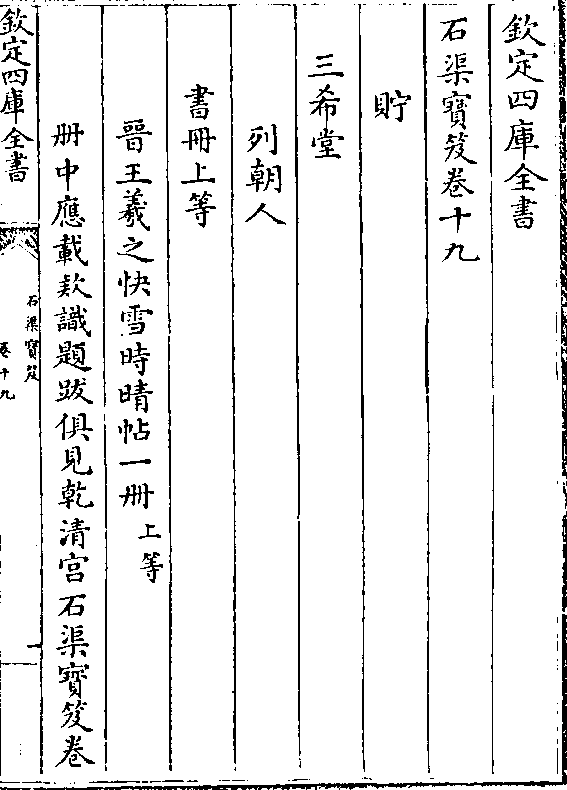 欽定四庫全書
石渠寳笈卷十九
貯
三希堂
列朝人
書冊上等
晉王羲之快雪時晴帖一冊上等
册中應載款識題跋俱見乾清宫石渠寳笈卷
欽定四庫全書
石渠寳笈
卷十九
一